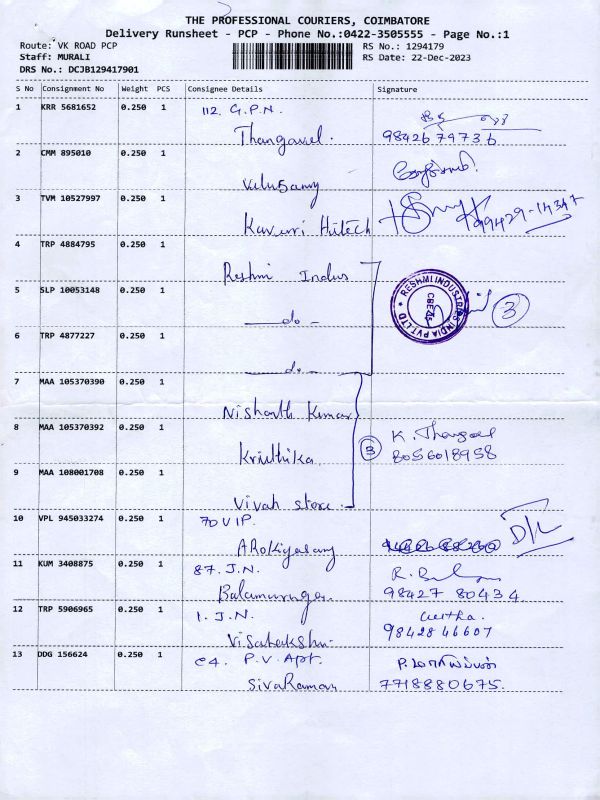 THE PROFESSIONAL COURIERS, COIMBATORE
Delivery Runsheet - PCP - Phone No.:0422-3505555 - Page No.:1
Route: VK ROAD PCP
RS No.: 1294179
Staff: MURALI
RS Date: 22-Dec-2023
DRS No.: DCJB129417901
S No Consignment No Weight PCS Consignee Details Signature
1 KRR 5681652 0.250 1 112. G.P.N.
Thangavel. 98426 79736
2 CMM 895010 0.250 1
Velusamy
3 TVM 10527997 0.250 1
Kaveri Hitech 99429-14347
4 TRP 4884795 0.250 1
Reshmi Indus
RESHMI INDUSTRIES INDIA PVT.LTD
CBE-45
5 SLP 10053148 0.250 1 3
do -
6 TRP 4877227 0.250 1
do -
7 MAA 105370390 0.250 1
Nishanth Kumar
8 MAA 105370392 0.250 1 K. Thangavel
Krithika 3 8056018958
9 MAA 108001708 0.250 1
Vivah store
10 VPL 945033274 0.250 1 70 VIP.
D/L
ARokiyasamy
11 KUM 3408875 0.250 1 87. J.N.
Balamurugan 98427 80434
12 TRP 5906965 0.250 1 1. J.N.
98428 46607
13 DDG 156624 0.250 1 C4. P.V. Apt.
SivaRaman 7718880675.